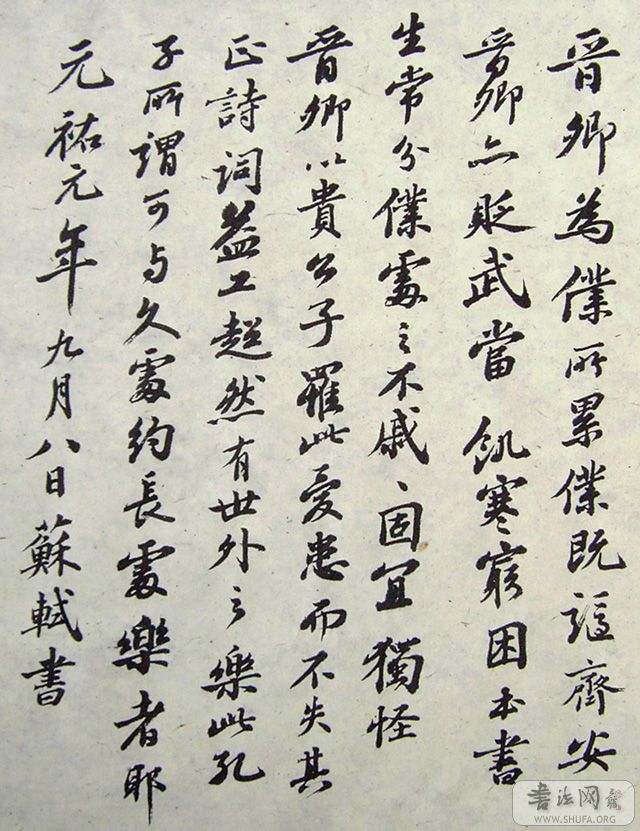 晉卿為僕所累僕既謫齊安
晉卿亦貶武當飢寒窮困本書
生常分僕處之不戚〻固宜獨怪
晉卿以貴公子罹此憂患而不失其
正詩詞益工超然有世外之樂此孔
子所謂可与久處約長處樂者耶
元祐元年九月八日蘇軾書
書法网
WWW.SHUFA.ORG